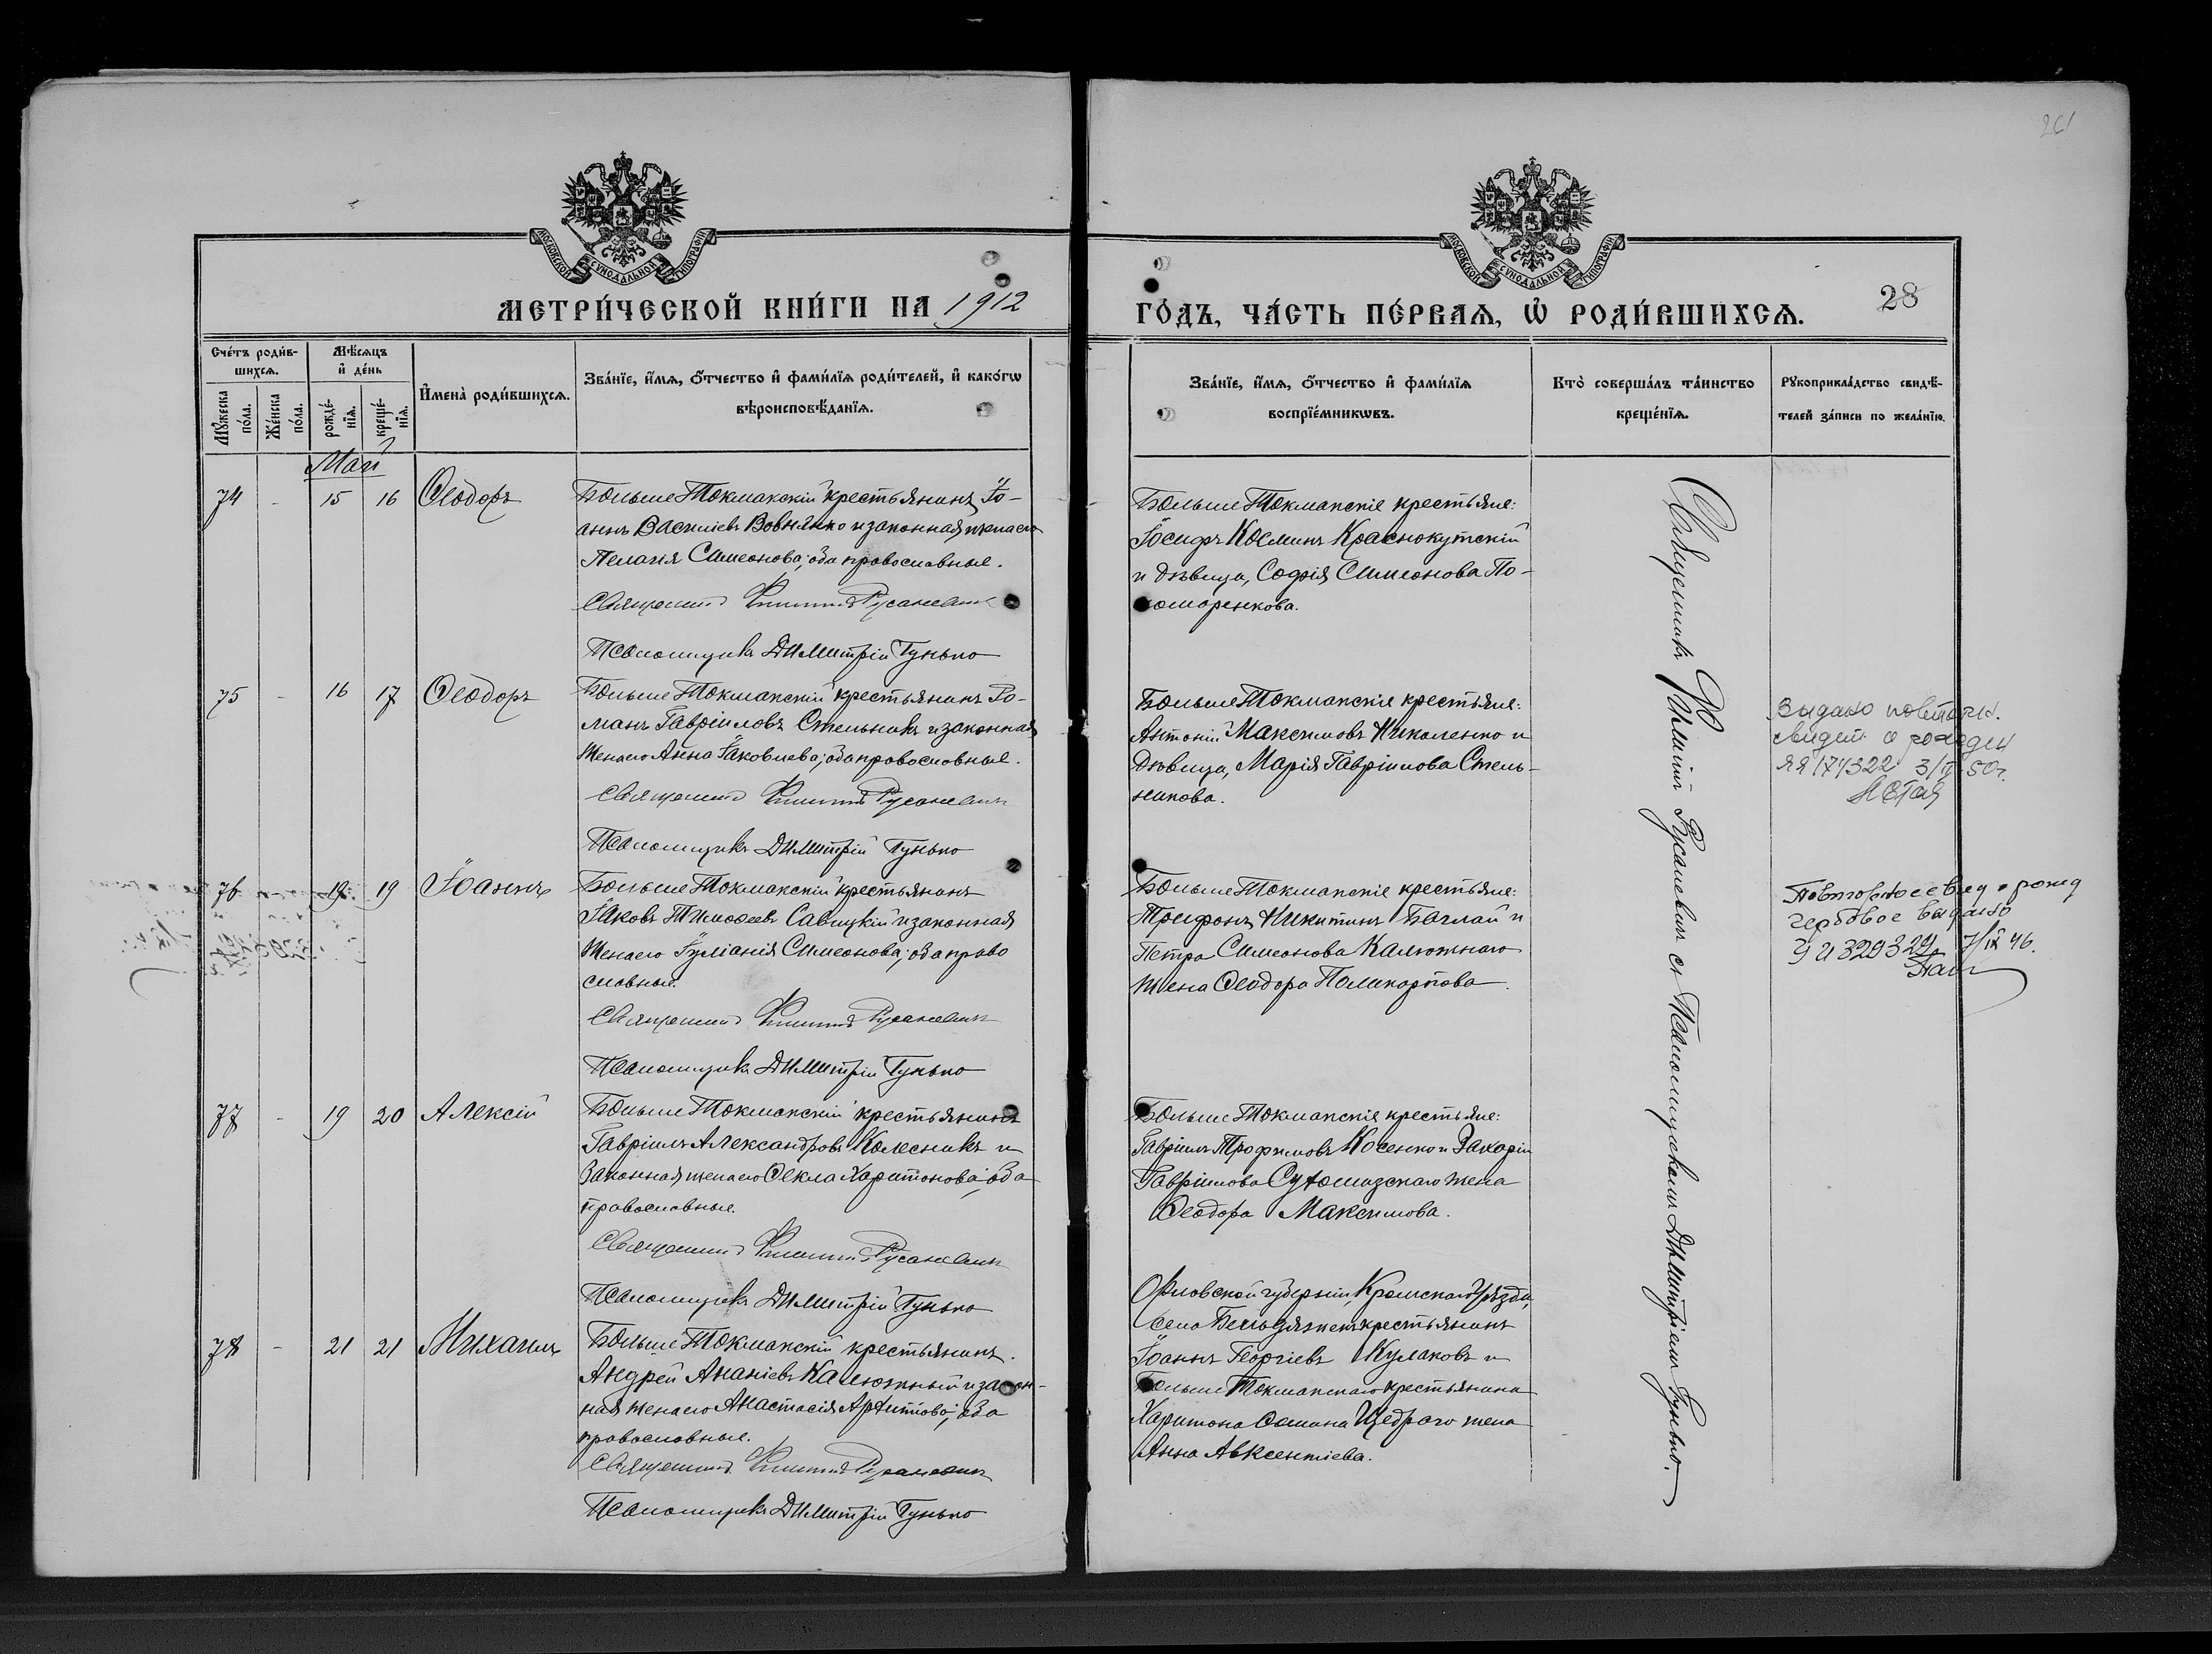 261
МОСКОВСКОЙ СѴНОДАЛЬНОЙ ТИПОГРАФІИ
МОСКОВСКОЙ СѴНОДАЛЬНОЙ ТИПОГРАФІИ
МЕТРИ́ЧЕСКОЙ КНИ́ГИ НА 1912
ГО́ДЪ, ЧА́СТЬ ПЕ́РВАѦ, Ѡ РОДИ́ВШИХСѦ.
28
Сче́тъ роди́в-
шихсѧ.
Мꙋ́жеска по́ла.
Же́нска по́ла.
Мѣ́сѧцъ
и҆ де́нь
рожде́-
нїѧ.
креще́-
нїѧ.
И҆мена̀ роди́вшихсѧ.
Зва́нїе, и҆́мѧ, ѻ҆́тчество и҆ фами́лїѧ роди́телей, и҆ како́гѡ
вѣроисповѣ́данїѧ.
Зва́нїе, и҆́мѧ, ѻ҆́тчество и҆ фами́лїѧ
воспрїе́мникѡвъ.
Кто̀ соверша́лъ та́инство
креще́нїѧ.
Рꙋкоприкла́дство свидѣ́-
телей за́писи по жела́нїю.
Май
74 - 15 16 Ѳеодоръ
Больше Токмакскій крестьянинъ Іо-
аннъ Василіевъ Вовнянко и законная жена его
Пелагія Симеонова; оба православные.
Священникъ Филиппъ Русаневичъ
Псаломщикъ Димитрій Гунько
Больше Токмакскіе крестьяне:
Іосифъ Косминъ Краснокутскій
и дѣвица, Софія Симеонова По-
номаренкова.
75 - 16 17 Ѳеодоръ
Больше Токмакскій крестьянинъ Ро-
манъ Гавріиловъ Стельникъ и законная
жена его Анна Іаковлева; оба православные.
Священникъ Филиппъ Русаневичъ
Псаломщикъ Димитрій Гунько
Больше Токмакскіе крестьяне:
Антоній Максимовъ Николенко и
дѣвица, Марія Гавріилова Стель-
никова.
Выдано повторн.
свидет. о рожден
ЯЯ 174322 3/II-50г.
76 - 19 19 Іоаннъ
Больше Токмакскій крестьянинъ
Іаковъ Тимоѳеевъ Савицкій и законная
жена его Іуліанія Симеонова; оба право
славные.
Священникъ Филиппъ Русаневичъ
Псаломщикъ Димитрій Гунько
Больше Токмакскіе крестьяне:
Трифонъ Никитинъ Баглай и
Петра Симеонова Калюжнаго
жена Ѳеодора Поликарпова.
Повторное свид о рожд
гербовое выдано
329329 7/IX 46.
77 - 19 20 Алексій
Больше Токмакскій крестьянинъ
Гавріилъ Александровъ Колесникъ и
законная жена его Ѳекла Харитонова; оба
православные.
Священникъ Филиппъ Русаневичъ
Псаломщикъ Димитрій Гунько
Больше Токмакскіе крестьяне:
Гавріилъ Трофимовъ Косенко и Захарія
Гавріилова жена
Ѳеодора Максимова.
78 - 21 21 Михаилъ
Больше Токмакскій крестьянинъ
Андрей Ананіевъ Калюжный и закон-
ная жена его Анастасія; оба
православные.
Священникъ Филиппъ Русаневичъ
Псаломщикъ Димитрій Гунько
Орловской губерніи, Кромскаго уѣзда,
села крестьянинъ
Іоаннъ Георгіевъ Кулаковъ и
Больше Токмакскаго крестьянина
Харитона Ѳомина Щедраго жена
Анна Авксентіева.
Священникъ Филиппъ Русаневичъ съ Псаломщикомъ Димитріемъ Гунько.